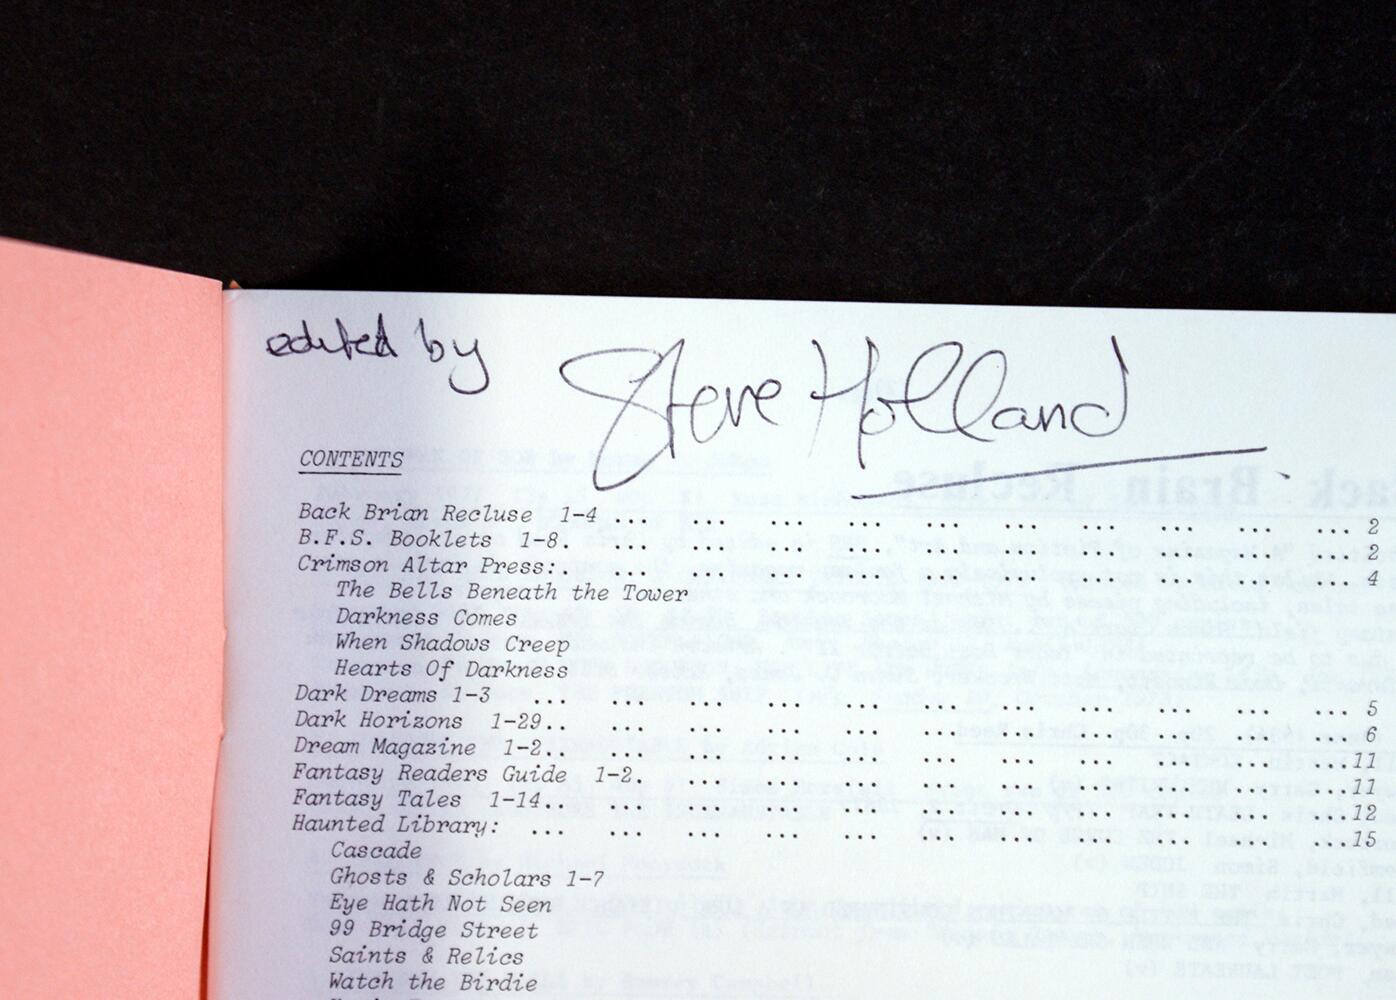 edited by Steve Holland
CONTENTS
Back Brian Recluse 1-4 ... ... ... ... ... ... ... ... ... ... 2
B.F.S. Booklets 1-8. ... ... ... ... ... ... ... ... ... ... 2
Crimson Altar Press: ... ... ... ... ... ... ... ... ... ... ... 4
The Bells Beneath the Tower
Darkness Comes
When Shadows Creep
Hearts Of Darkness
Dark Dreams 1-3 ... ... ... ... ... ... ... ... ... ... ... 5
Dark Horizons 1-29 ... ... ... ... ... ... ... ... ... ... ... 6
Dream Magazine 1-2. ... ... ... ... ... ... ... ... ... ... 11
Fantasy Readers Guide 1-2. ... ... ... ... ... ... ... ... ... 11
Fantasy Tales 1-14. ... ... ... ... ... ... ... ... ... ... 12
Haunted Library: ... ... ... ... ... ... ... ... ... ... ... 15
Cascade
Ghosts & Scholars 1-7
Eye Hath Not Seen
99 Bridge Street
Saints & Relics
Watch the Birdie